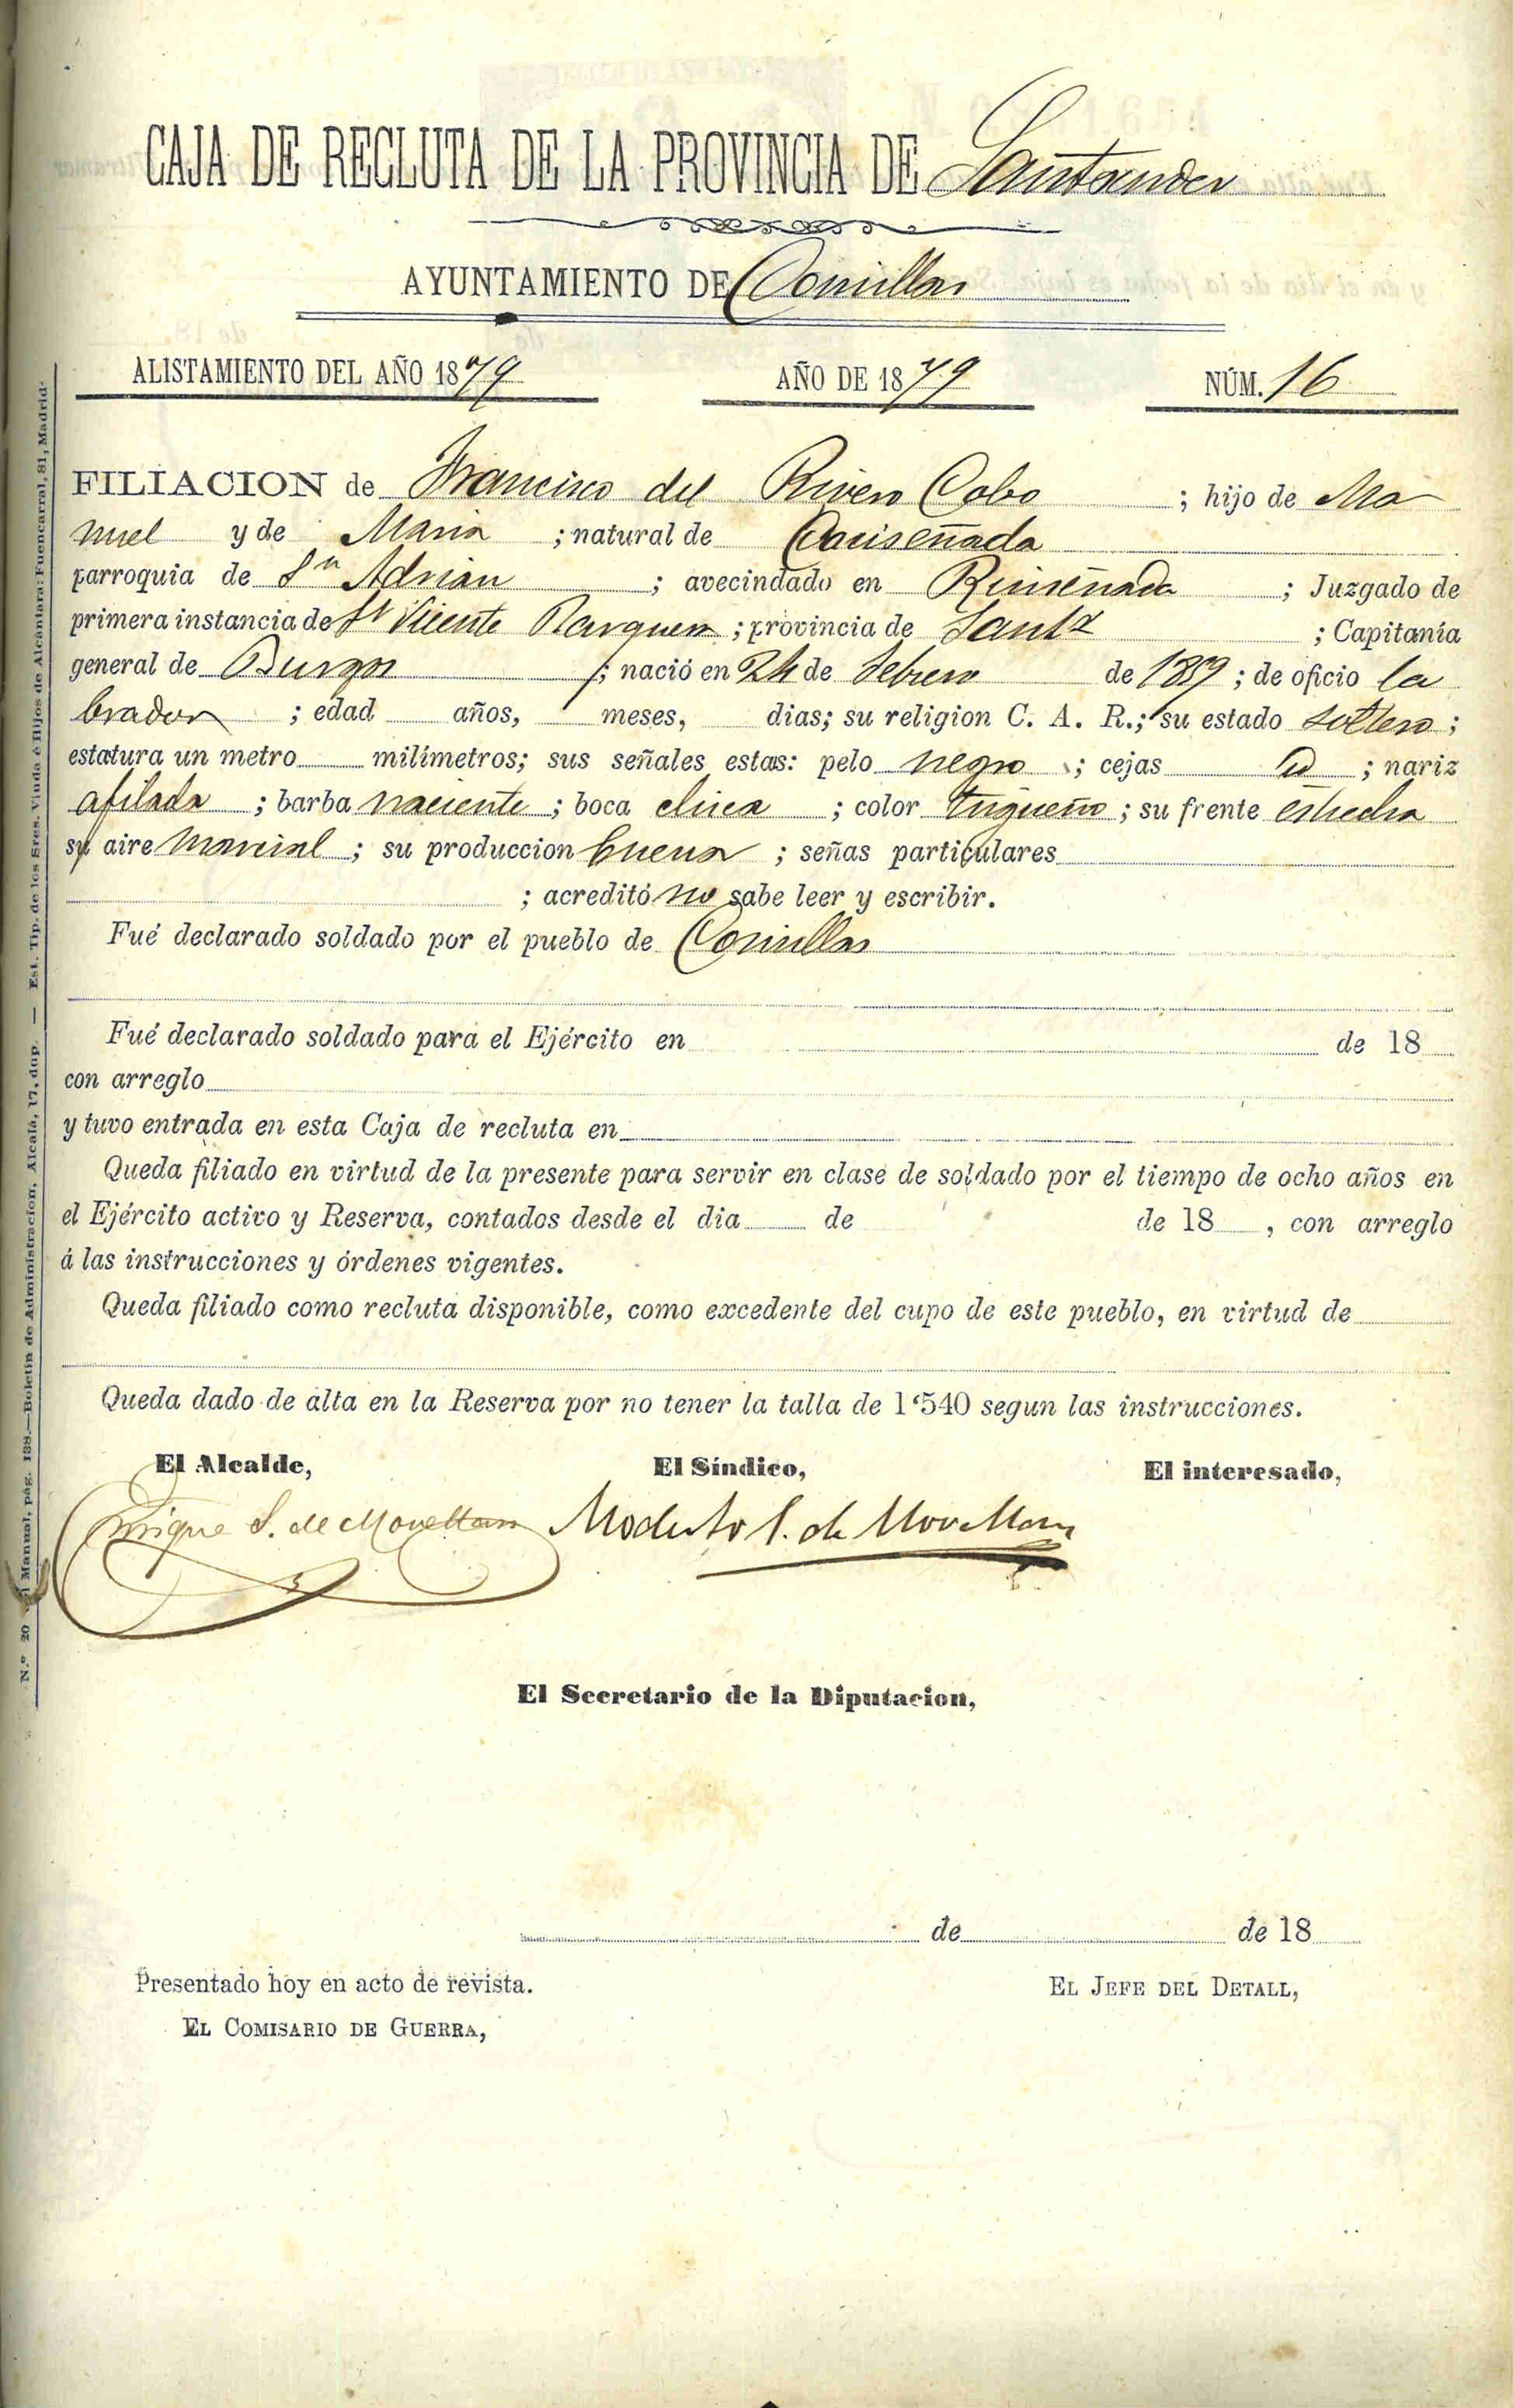 CAJA DE RECLUTA DE LA PROVINCIA DE Santander
AYUNTAMIENTO DE Comillas
ALISTAMIENTO DEL AÑO 1879 AÑO DE 1879 NÚM. 16
FILIACION de Francisco del Rivero Cobo ; hijo de Ma
nuel y de Maria ; natural de Ruiseñada
parroquia de Sn Adrian ; avecindado en Ruiseñada ; Juzgado de
primera instancia de Sn Vicente Barquera ; provincia de Santr ; Capitanía
general de Burgos ; nació en 24 de Febrero de 1859 ; de oficio la
brador ; edad años, meses, dias; su religion C. A. R.; su estado soltero ;
estatura un metro milímetros; sus señales estas: pelo negro ; cejas id ; nariz
afilada ; barba naciente ; boca chica ; color trigueño ; su frente estrecha
su aire marcial ; su produccion buena ; señas particulares
; acreditó no sabe leer y escribir.
Fué declarado soldado por el pueblo de Comillas
Fué declarado soldado para el Ejército en de 18
con arreglo
y tuvo entrada en esta Caja de recluta en
Queda filiado en virtud de la presente para servir en clase de soldado por el tiempo de ocho años en
el Ejército activo y Reserva, contados desde el dia de de 18 , con arreglo
á las instrucciones y órdenes vigentes.
Queda filiado como recluta disponible, como excedente del cupo de este pueblo, en virtud de
Queda dado de alta en la Reserva por no tener la talla de 1'540 segun las instrucciones.
El Alcalde, El Síndico, El interesado,
Enrique S. de Movellan Modesto S. de Movellan
El Secretario de la Diputacion,
de de 18
Presentado hoy en acto de revista. EL JEFE DEL DETALL,
EL COMISARIO DE GUERRA,
N.º 20 Manual, pág. 188.—Boletin de Administracion, Alcalá, 17, dup. — Est. Tip. de los Sres. Viuda é Hijos de Alcántara: Fuencarral, 81, Madrid.